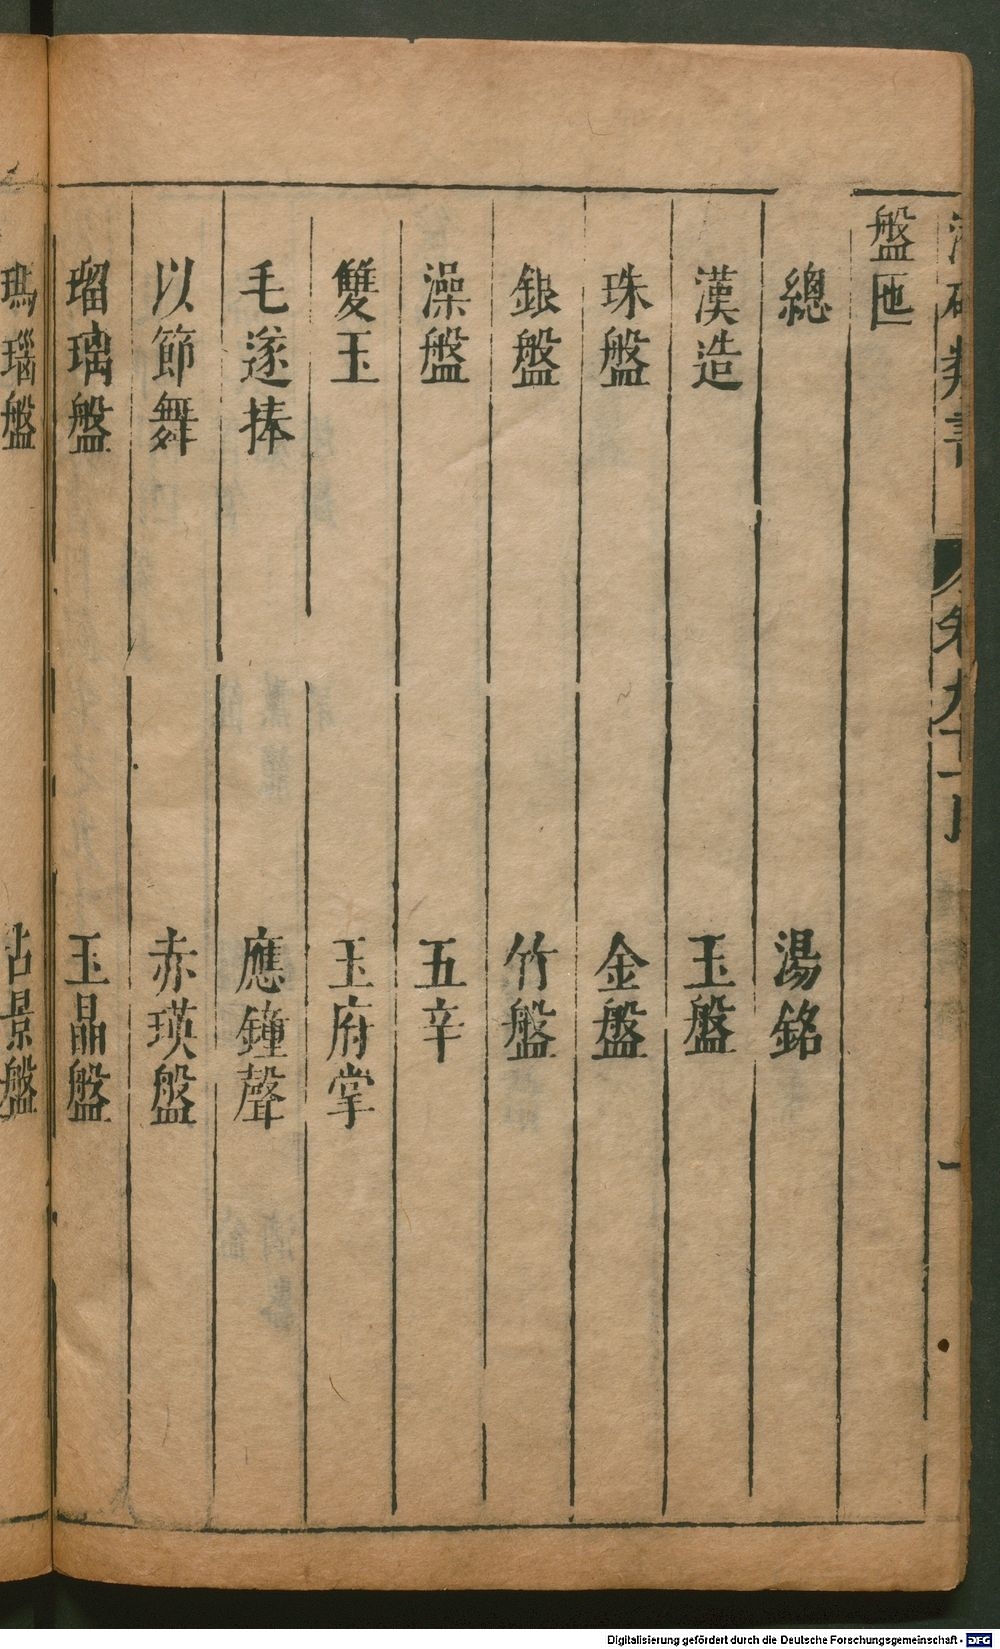 盤匜
總 湯銘
漢造 玉盤
珠盤 金盤
銀盤 竹盤
澡盤 五辛
雙玉 玉府掌
毛遂捧 應鐘聲
以節舞 赤瑛盤
瑠璃盤 玉晶盤
瑪瑙盤 占景盤
Digitalisierung gefördert durch die Deutsche Forschungsgemeinschaft - DFG